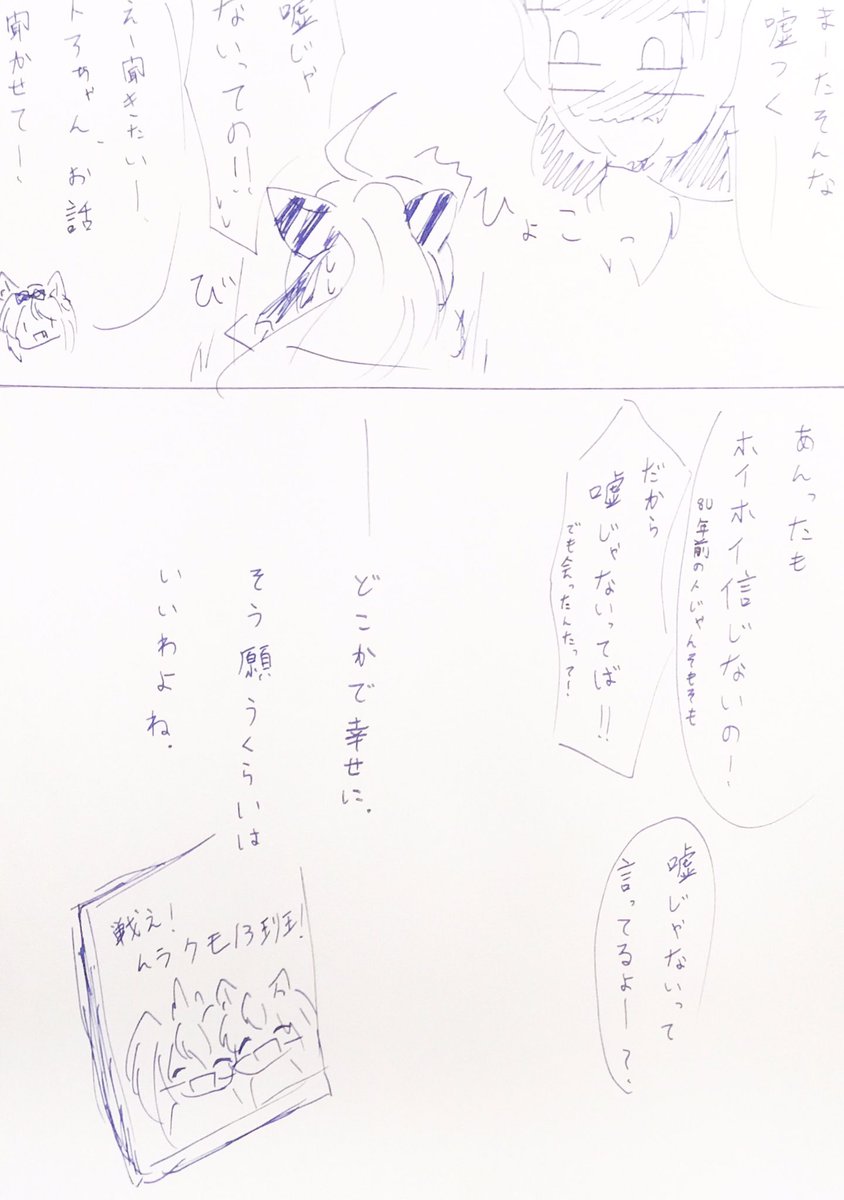 まーたそんな
嘘つくー
ひょこっ
嘘じゃ
ないっての!!
びし
えー聞きたいー、
トろちゃん、お話
聞かせてー!
あんったも
ホイホイ信じないの!
80年前の人じゃんそもそも
だから
嘘じゃないってば!!
でも会ったんだって!
嘘じゃないって
言ってるよー?
――どこかで幸せに.
そう願うくらいは
いいわよね.
戦え!
ムラクモ13班!